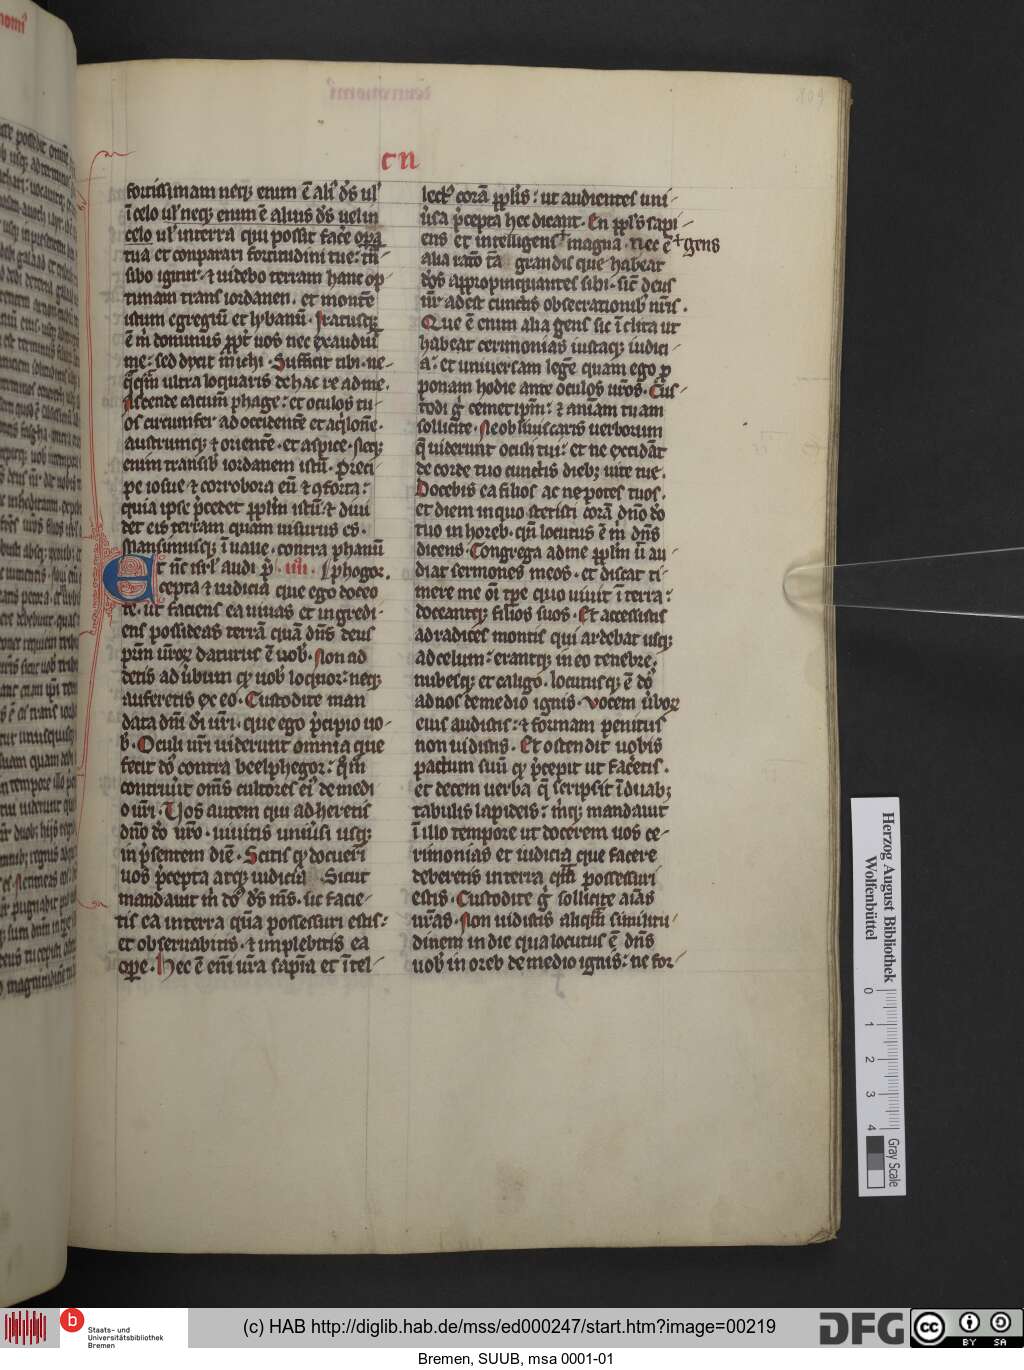 cn
fortissimam neq; enim ē ali' d's ul'
ī celo ul' neq; enim ē alius d's uel in
celo ul' in terra qui possit fac̄e opa
tua et conparari fortitudini tue: tn̄
sibo igitur · ⁊ uidebo terram hanc op
timam trans iordanen. et montē
istum egregiū et lybanū · Iratusq;
ē m̄ dominus ꝓpt' uos nec exaudiuit
me: sed dixit michi · Sufficit tibi · ne-
q̄q̄m ultra loquaris de hac re ad me.
Ascende cacum̄ phage: et oculos tu-
os circumfer ad occidentē et aq̇lonē.
austrumq; ⁊ orientē · et aspice · Necq;
enim transib' iordanem istū · Preci-
pe iosue ⁊ corrobora eū ⁊ ꝯforta:
quia ipse p̄cedet pplm̄ istū: ⁊ diui
det eis terram quam uisurus es.
Mansimusq; ī ualle · contra phanū
Et nc̄ isr'l audi p̄ · iiii · phogor.
cepta ⁊ iudicia que ego doceo
te. ut faciens ea uiuas et ingredi-
ens possideas terrā quā dn̄s deus
pr̄m ur̄oꝝ daturus ē uob'. Non ad
detis ad u̇bum qd' uob' loquor: neq;
auferetis ex eo · Custodite man
data dn̄i di̇ ur̄i · que ego p̄cipio uo-
b' · Oculi ur̄i uiderunt omnia que
fecit d's contra beelphegor: q̄m̄
contriu̇it om̄s cultores ei' de medi
o ur̄i · Uos autem qui adheretis
dn̄o do̅ ur̄o · uiuitis uniu̇si usq;
in p̄sentem diē · Scitis qd' docuerī
uos p̄cepta atq; iudicia Sicut
mandauit m̄ d's d's m̄s · sic facie-
tis ea in terra qūa possessuri estis:
et obseruabitis · ⁊ implebitis ea
ope · Hec ē enī ur̄a sapīa et ī tel-
lect' corā pplis: ut audientes uni-
u̇sa p̄cepta hec dicant · En ppl's sapi-
ens et intelligens magna · Nec ē gens
alia natō tā grandis que habeat
dōs appropinquantes sibi · sic̄ deus
nr̄ adest cunctis obsecrationib' nr̄is.
Que ē enim alia gens sic īclita ut
habeat cerimonias iustaq; iudici-
a: et uniuersam legē quam ego p
ponam hodie ante oculos ur̄os · Cus-
todi g' temetip̄m: ⁊ aniam tuam
sollicite · Ne obliuiscaris uerborum
q̄ uiderunt oculi tui: et ne excidāt
de corde tuo cunctis dieb; uite tue.
Docebis ea filios ac nepotes tuos.
et diem in quo stetisti corā dn̄o do̅
tuo in horeb · qn̄ locutus ē m̄ dn̄s
dicens · Congrega ad me pplm̄ ū au-
diat sermones meos · et discat ti-
mere me oī tp̄e quo uiuit ī terra:
doceantq; filios suos · Et accessistis
ad radices montis qui ardebat usq;
ad celum: erantq; in eo tenebre.
nubesq; et caligo · locutusq; ē d's
ad uos de medio ignis · uocem u̇boꝝ
eius audistis: ⁊ formam penitus
non uidistis · Et ostendit uobis
pactum suū qd' p̄cepit ut fac̄etis.
et decem uerba q̄ scripsit ī duab;
tabulis lapideis: m̄q; mandauit
ī illo tempore ut docerem uos ce-
rimonias et iudicia que facere
deberetis in terra q̄m possessuri
estis · Custodite g' sollicite aīas
ur̄as · Non uidistis aliq̄m simi̇tu-
dinem in die qua locutus ē dn̄s
uob' in oreb de medio ignis: ne for-
Herzog August Bibliothek
Wolfenbüttel
0 1 2 3 4
Gray Scale
b Staats- und
Universitätsbibliothek
Bremen
(c) HAB http://diglib.hab.de/mss/ed000247/start.htm?image=00219
DFG
cc BY SA
Bremen, SUUB, msa 0001-01